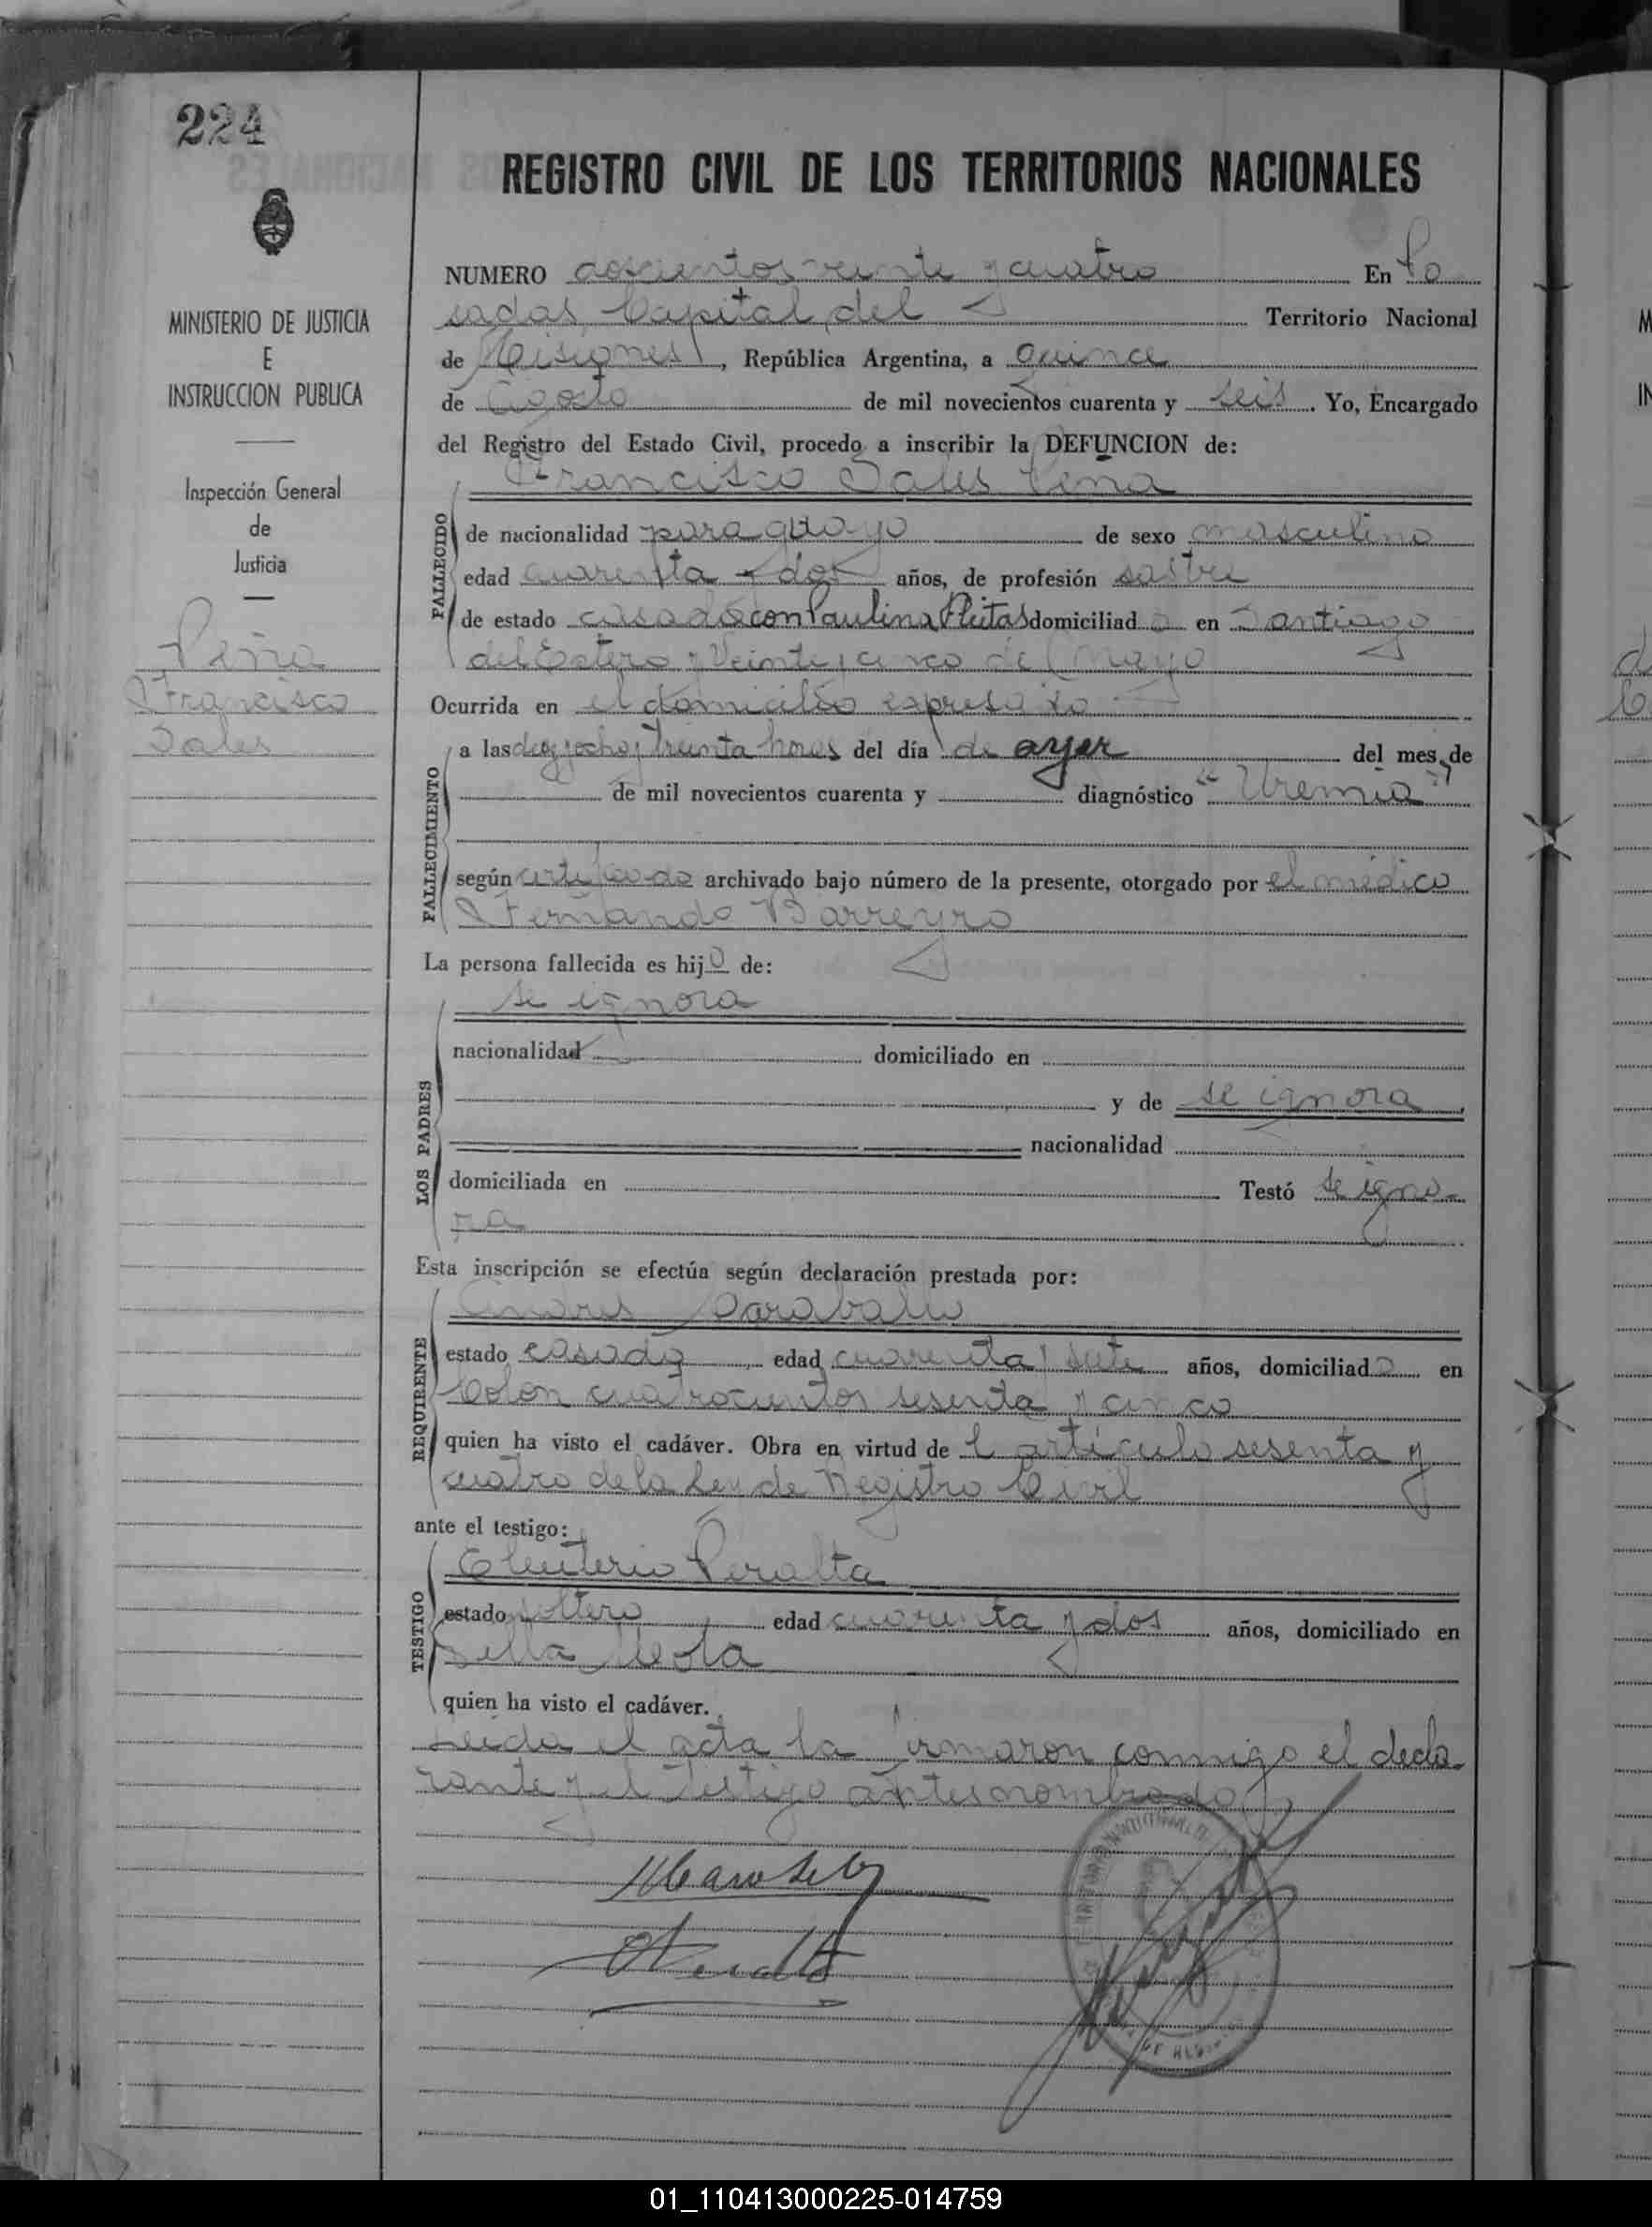 224
REGISTRO CIVIL DE LOS TERRITORIOS NACIONALES
MINISTERIO DE JUSTICIA
E
INSTRUCCION PUBLICA
Inspección General
de
Justicia
Peña
Francisco
Sales
NUMERO doscientos veinte y cuatro En Po
sadas, Capital del Territorio Nacional
de Misiones, República Argentina, a quince
de Agosto de mil novecientos cuarenta y seis. Yo, Encargado
del Registro del Estado Civil, procedo a inscribir la DEFUNCION de:
Francisco Sales Peña
FALLECIDO
de nacionalidad paraguayo de sexo masculino
edad cuarenta y dos años, de profesión sastre
de estado casado con Paulina Fleitas domiciliado en Santiago
del Estero y Veinte y cinco de Mayo
Ocurrida en el domicilio expresado
FALLECIMIENTO
a las diez y ocho y treinta horas del día de ayer del mes de
de mil novecientos cuarenta y diagnóstico "Uremia"
según certificado archivado bajo número de la presente, otorgado por el médico
Fernando Barreyro
La persona fallecida es hijo de:
LOS PADRES
se ignora
nacionalidad domiciliado en
y de se ignora
nacionalidad
domiciliada en Testó se igno-
ra
Esta inscripción se efectúa según declaración prestada por:
REQUIRENTE
Andres Caraballo
estado casado edad cuarenta y siete años, domiciliado en
Colón cuatrocientos sesenta y cinco
quien ha visto el cadáver. Obra en virtud de l artículo sesenta y
cuatro de la Ley de Registro Civil
ante el testigo:
TESTIGO
Eleuterio Peralta
estado soltero edad cuarenta y dos años, domiciliado en
quien ha visto el cadáver.
Leida el acta la firmaron conmigo el decla
rante y el testigo antes nombrado
01_110413000225-014759